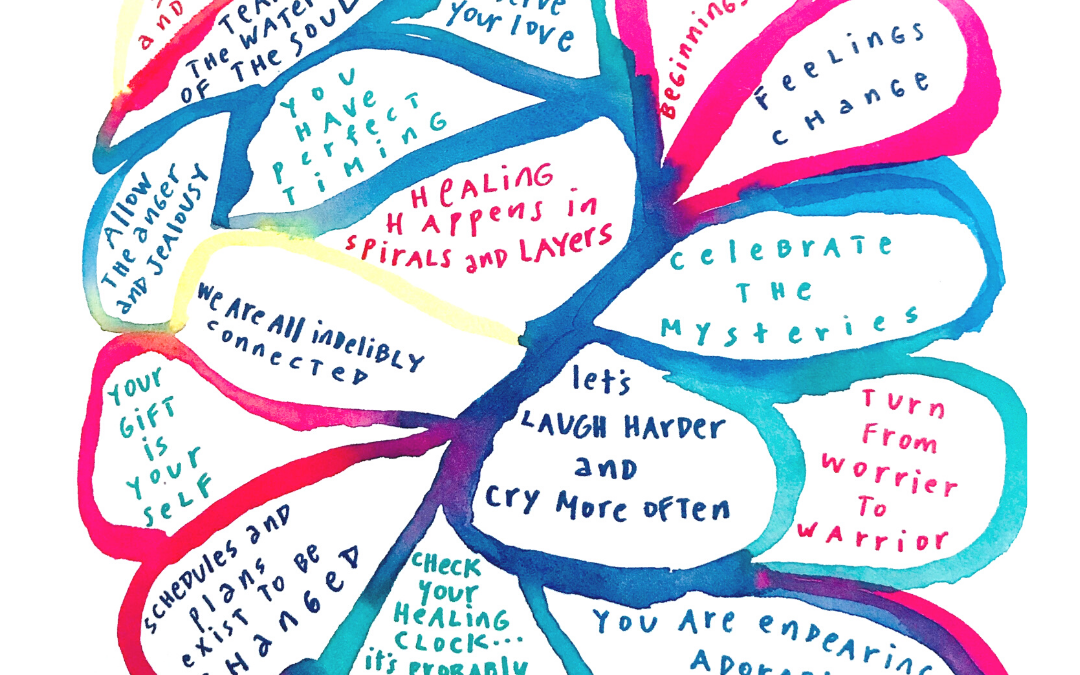 and
THE WATER
OF THE SOUL
your love
Beginnings
Feelings
change
You
Have
perfect
Timing
Allow
The anger
and Jealousy
Healing
Happens in
Spirals and Layers
Celebrate
The
Mysteries
We are all indelibly
connected
Your
Gift
is
your
self
let's
LAUGH HARDER
and
Cry More often
Turn
From
Worrier
To
Warrior
Schedules and
plans
exist to be
changed
Check
your
Healing
Clock...
it's probably
You are endearing